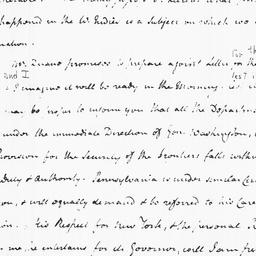 happened in the W. Indies is a subject on which we
mation.
Mr. Duane promises to prepare against
for th
and I
I imagine it will be ready in the Morning.
may be useful to inform you that all the Departm
under the immediate Direction of Gen. Washington,
Provision for the Security of the Frontiers falls within
Duty & Authority. Pennsylvania is under similar Circ
on, & will equally demand & be referred to his Care
ion. His Respect for New York, & the personal R
he entertains for its Governor, will I am